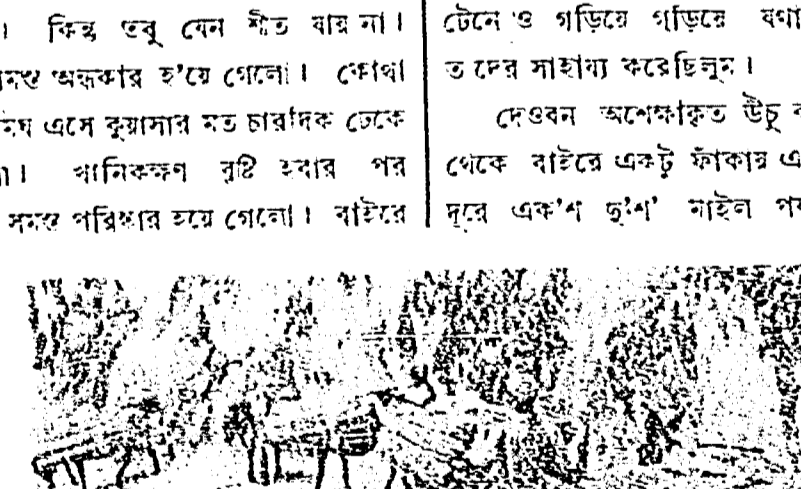 । কিন্তু তবু যেন শীত যায় না।
অন্ধকার হ'য়ে গেলো। কোথা
এসে কুয়াসার মত চারদিক ঢেকে
। খানিকক্ষণ বৃষ্টি হবার পর
সমস্ত পরিষ্কার হয়ে গেলো। বাইরে
টেনে ও গড়িয়ে গড়িয়ে
তাদের সাহায্য করেছিলুম।
দেওবন অপেক্ষাকৃত উঁচু
থেকে বাইরে একটু ফাঁকায়
দূরে এক'শ দু'শ' মাইল